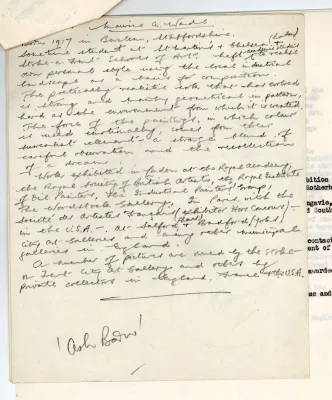 Maurice A. Wade
Born 1917 in Burslem, Staffordshire.
Sometime student at Burslem &
Stoke-on-Trent Schools of Art. Left
own personal style using the local industrial
landscape as a basis for composition.
The poetically realistic note that has evolved
is strong and starkly geometrical in pattern,
hard as the environment from which it is created.
The form of the paintings, in which colour
is used emotionally, takes from their
somewhat element a strange blend of
careful observation and the recollection
of a dream.
Works exhibited in London at the Royal Academy,
the Royal Society of British Artists, the Royal Institute
of Oil Painters, the Industrial Painters Group,
The Woodstock Gallery; In Paris with the
Société des Artistes Français (exhibitor Hors Concours) –
in the U.S.A. – at Salford & Bradford
City Art Galleries and many other municipal
galleries in England.
A number of pictures are owned by the Stoke
on Trent City Art Gallery and others by
private collectors in England, France & the U.S.A.
ibition
Rotherh
ngavie,
d South
contact
ent of
awarde
us and